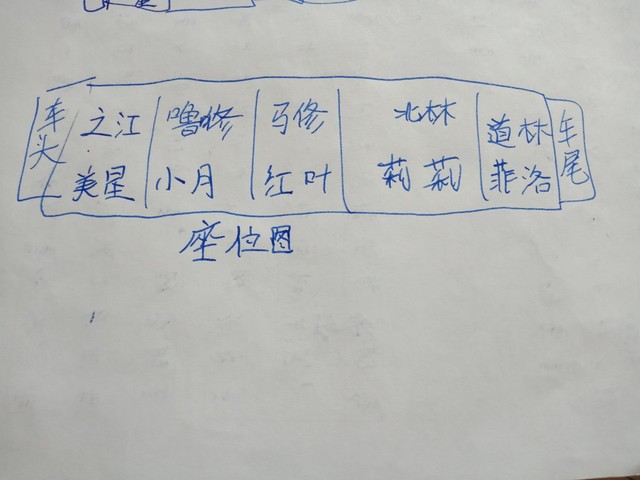 车头 之江 噜修 马修 北林 道林 车尾
美星 小月 红叶 莉莉 菲洛
座位图